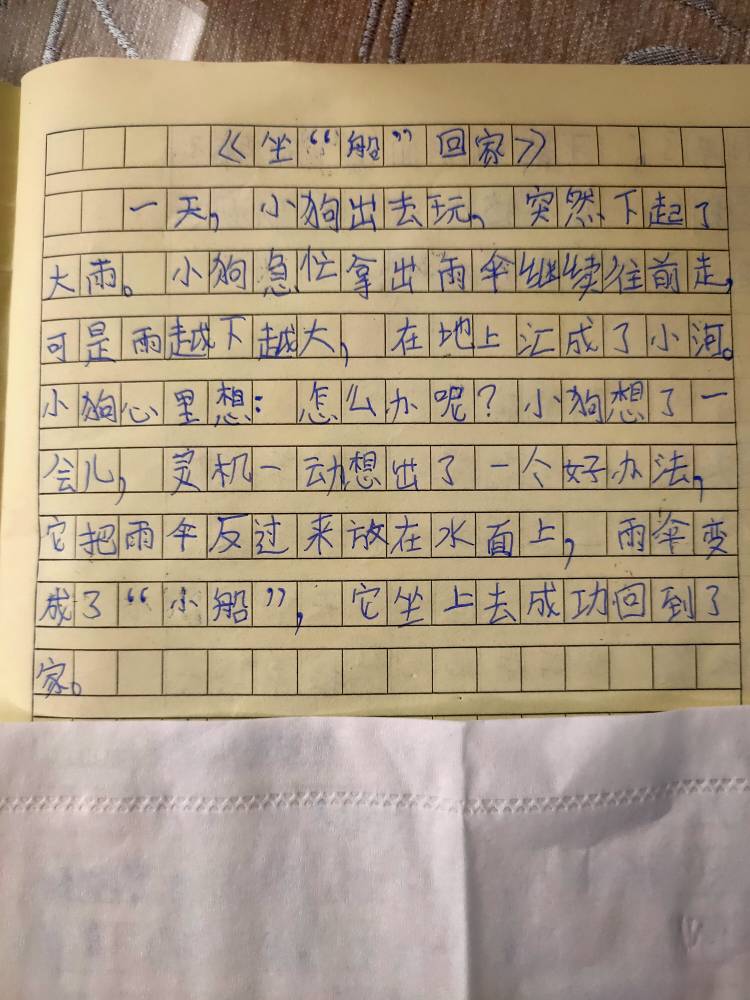 《坐“船”回家》
一天，小狗出去玩，突然下起了
大雨。小狗急忙拿出雨伞继续往前走，
可是雨越下越大，在地上汇成了小河。
小狗心里想：怎么办呢？小狗想了一
会儿，灵机一动想出了一个好办法，
它把雨伞反过来放在水面上，雨伞变
成了“小船”，它坐上去成功回到了
家。